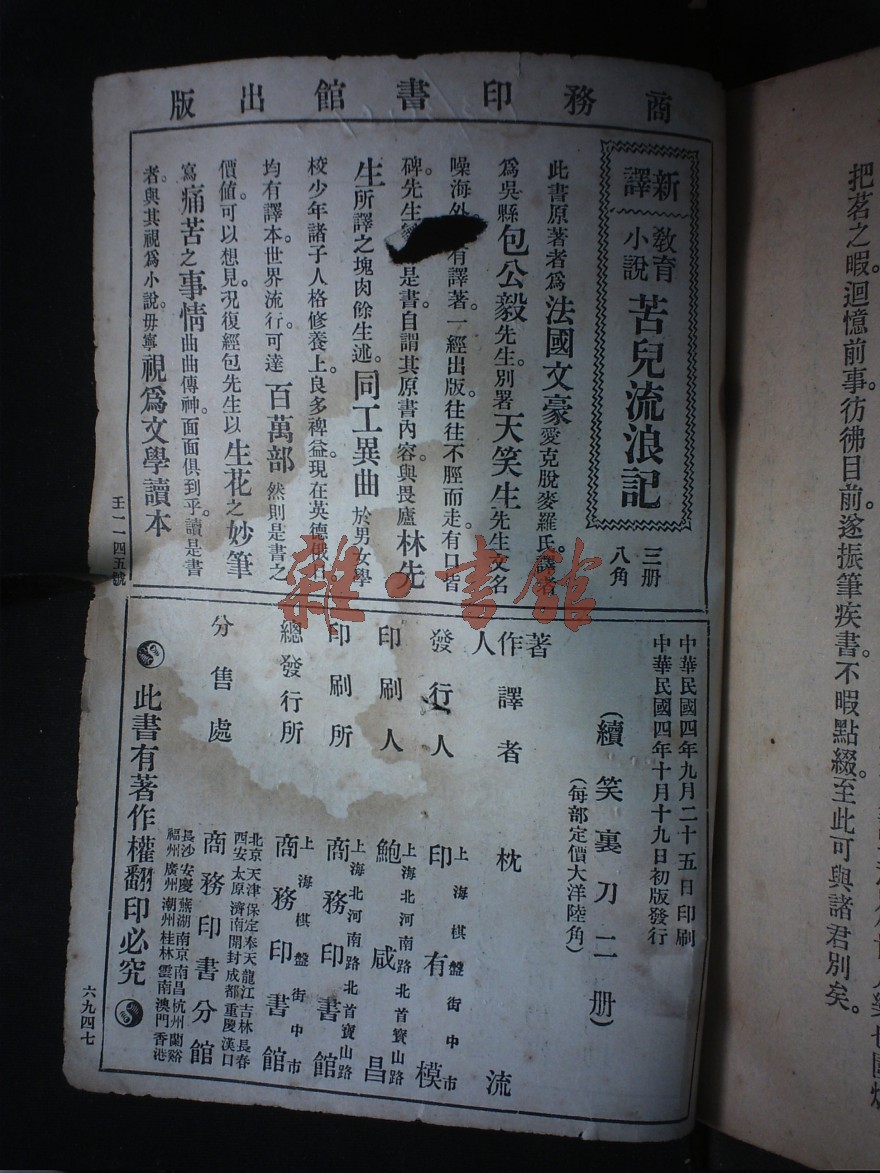 把茗之暇。迴憶前事。彷彿目前。遂振筆疾書。不暇點綴。至此可與諸君別矣。
商務印書館出版
新譯
教育小說
苦兒流浪記
三册
八角
此書原著者爲法國文豪愛克脫麥羅氏。譯者
爲吳縣包公毅先生。別署天笑生先生文名
噪海外 有譯著。一經出版。往往不脛而走。有口皆
碑。先生 是書。自謂其原書內容。與畏廬林先
生所譯之塊肉餘生述。同工異曲。於男女學
校少年諸子人格修養上。良多裨益。現在英德俄
均有譯本。世界流行。可達百萬部。然則是書之
價値。可以想見。況復經包先生以生花之妙筆
寫痛苦之事情。曲曲傳神。面面俱到乎。讀是書
者與其視爲小說。毋寧視爲文學讀本
壬一一四五號
中華民國四年九月二十五日印刷
中華民國四年十月十九日初版發行
(續笑裏刀二册)
(每部定價大洋陸角)
著作人 譯者 枕流
發行人 上海棋盤街中市 印有模
印刷人 上海北河南路北首寶山路 鮑咸昌
印刷所 上海北河南路北首寶山路 商務印書館
總發行所 上海棋盤街中市 商務印書館
分售處
北京天津保定奉天龍江吉林長春
西安太原濟南開封成都重慶漢口
商務印書分館
長沙安慶蕪湖南京南昌杭州蘭谿
福州廣州潮州桂林雲南澳門香港
此書有著作權翻印必究
六九四七
雜書館